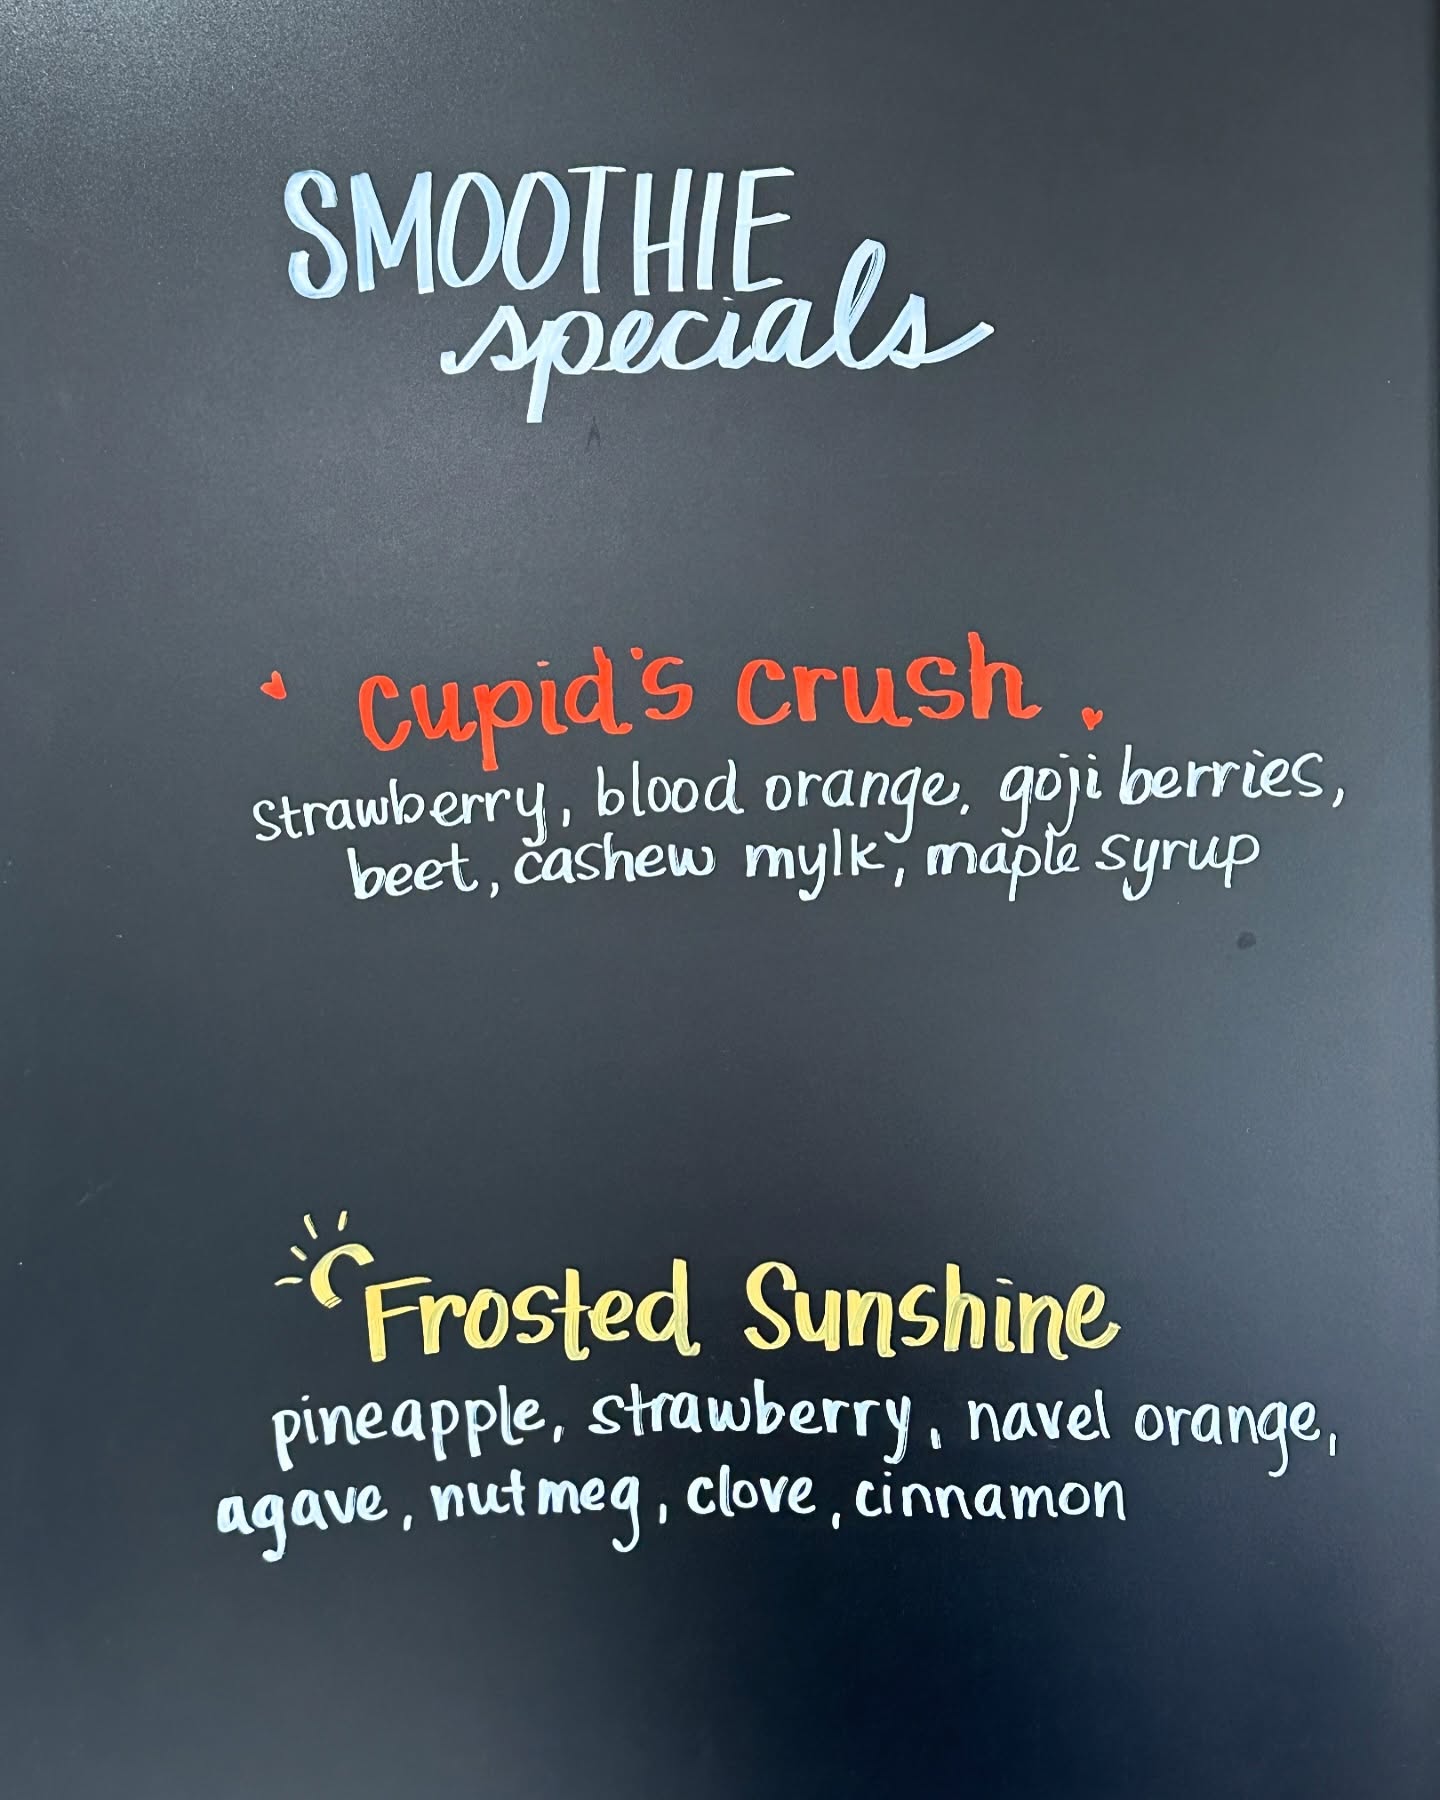 SMOOTHIE
specials
cupid's crush
strawberry, blood orange, goji berries,
beet, cashew mylk, maple syrup
Frosted Sunshine
pineapple, strawberry, navel orange,
agave, nutmeg, clove, cinnamon